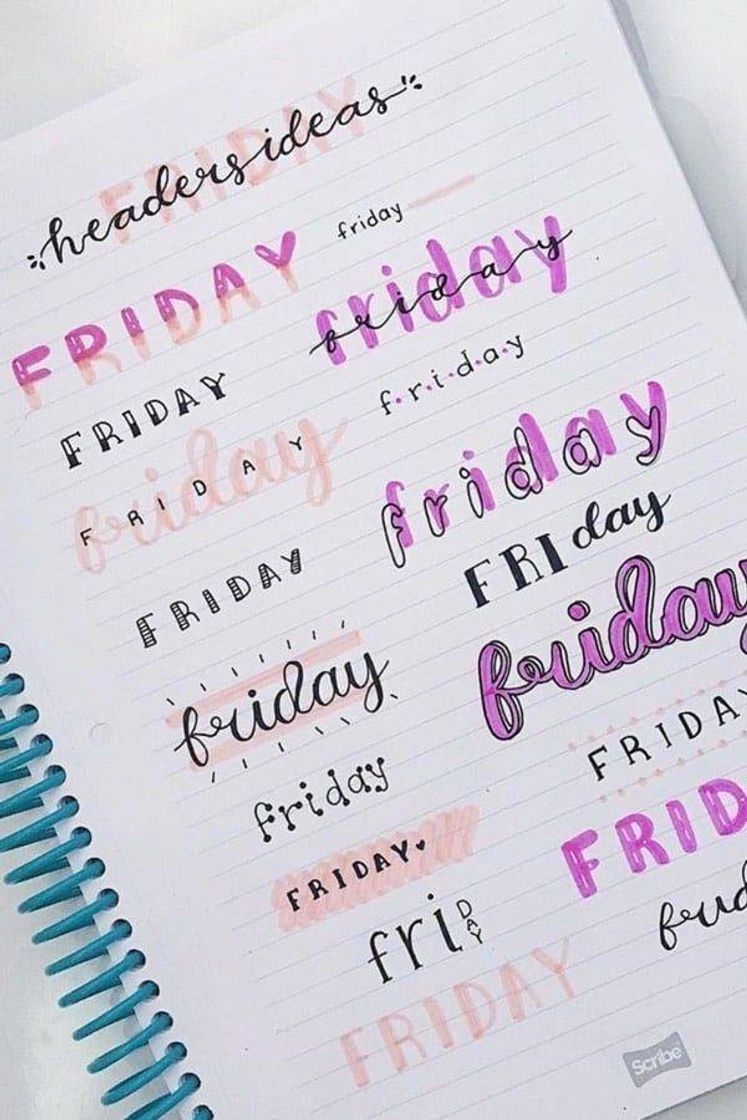 FRIDAY
headers ideas
friday
FRIDAY
friday
friday
FRIDAY
f.r.i.d.a.y
friday
F R I D A Y
friday
friday
FRIday
FRIDAY
friday
friday
FRIDAY
friday
FRID
FRIDAY♥
friDAY
FRIDAY
Scribe